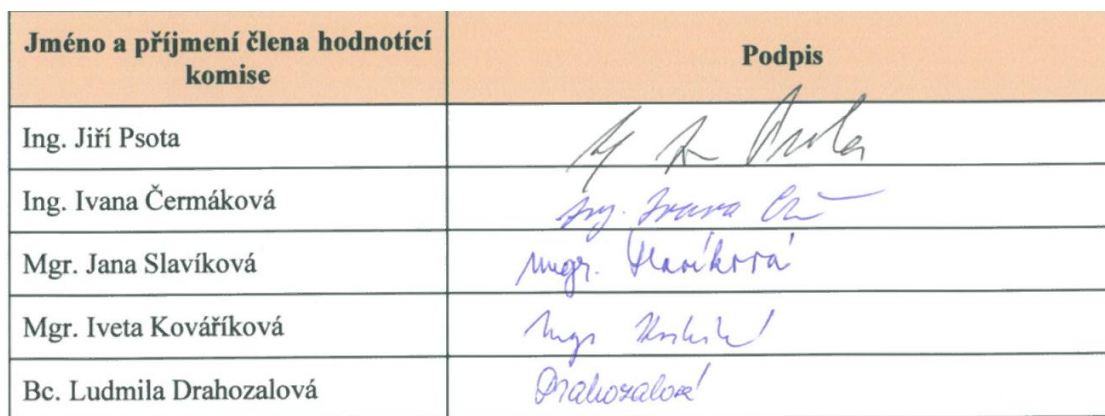 Jméno a příjmení člena hodnotící
komise
Podpis
Ing. Jiří Psota
Psota
Ing. Ivana Čermáková
Ing. Ivana
Mgr. Jana Slavíková
Mgr. Slavíková
Mgr. Iveta Kováříková
Mgr
Bc. Ludmila Drahozalová
Drahozalová